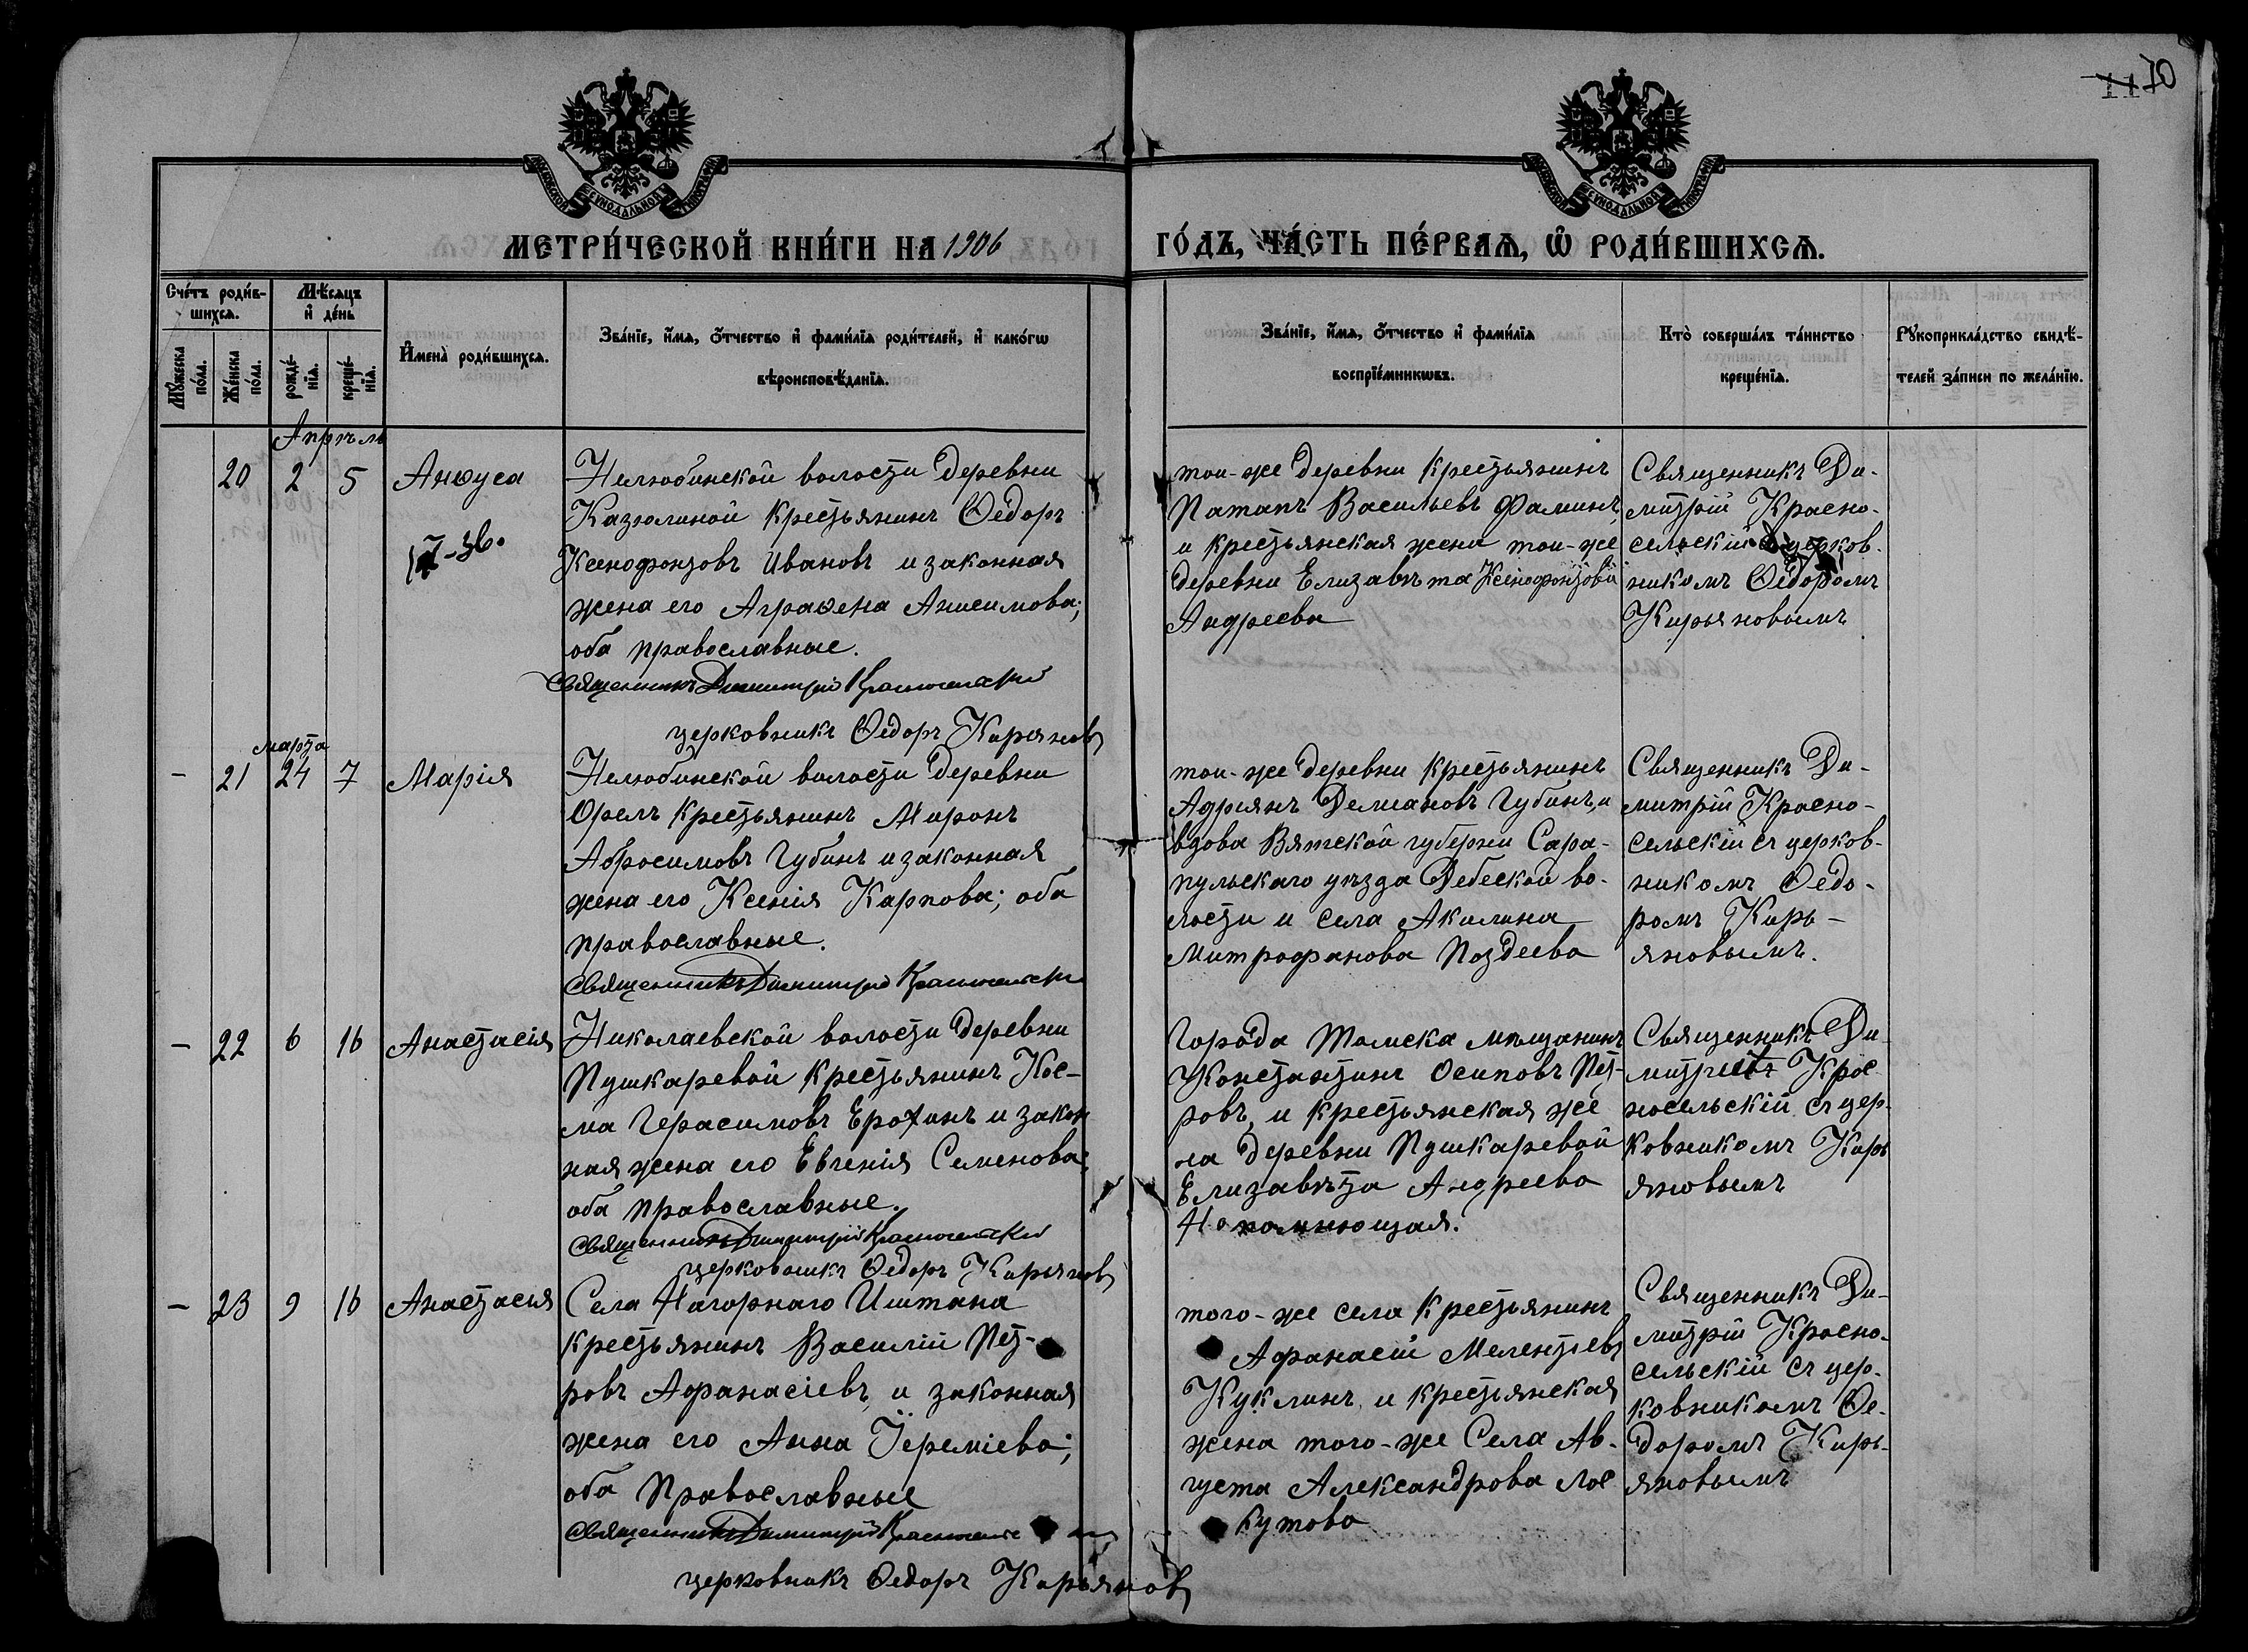 70
МЕТРИ́ЧЕСКОЙ КНИ́ГИ НА 1906
ГО́ДЪ, ЧА́СТЬ ПЕ́РВАѦ, Ѡ҆ РОДИ́ВШИХСѦ.
Сче́тъ роди́в-
шихсѧ.
Мѣ́сѧцъ
и҆ де́нь
Мꙋ́жеска
по́ла.
Же́нска
по́ла.
рожде́-
нїѧ.
креще́-
нїѧ.
И҆мена̀ роди́вшихсѧ.
Зва́нїе, и҆́мѧ, ѻ҆́тчество и҆ фами́лїѧ роди́телей, и҆ како́гѡ
вѣроисповѣ́данїѧ.
Зва́нїе, и҆́мѧ, ѻ҆́тчество и҆ фами́лїѧ
воспрїе́мникѡвъ.
Кто̀ соверша́лъ та́инство
креще́нїѧ.
Рꙋкоприкла́дство свидѣ́-
телей за́писи по жела́нїю.
Апрѣль
20 2 5 Анѳуса
Нелюбинской волости деревни
Казюлиной крестьянинъ Ѳедоръ
Ксенофонтовъ Ивановъ и законная
жена его Аграѳена Анисимова;
оба православные.
Священникъ Димитрій Красносельскій
церковникъ Ѳедоръ Кирьяновъ
той-же деревни крестьянинъ
Патапъ Васильевъ Фаминъ,
и крестьянская жена той-же
деревни Елизавѣта Ксенофонтова
Андреева
Священникъ Ди-
митрій Красно-
сельскій съ церков-
никомъ Ѳедоромъ
Кирьяновымъ
марта
- 21 24 7 Марія
Нелюбинской волости деревни
Орелъ крестьянинъ Миронъ
Абросимовъ Губинъ и законная
жена его Ксенія Карпова; оба
православные.
Священникъ Димитрій Красносельскій
той-же деревни крестьянинъ
Адріянъ Демановъ Губинъ, и
вдова Вятской губерни Сара-
пульскаго уѣзда Дебеской во-
лости и села Акилина
Митрофанова Поздеева
Священникъ Ди-
митрій Красно-
сельскій съ церков-
никомъ Ѳедо-
ромъ Кирь-
яновымъ.
- 22 6 16 Анастасія
Николаевской волости деревни
Пушкаревой крестьянинъ Кос-
ма Герасимовъ Ерохинъ и закон
ная жена его Евгенія Семенова;
оба православные.
Священникъ Димитрій Красносельскій
церковникъ Ѳедоръ Кирьяновъ
Города Томска мѣщанинъ
Константинъ Осиповъ Пет-
ровъ, и крестьянская же
на деревни Пушкаревой
Елизавѣта Андреева
Непомнющая.
Священникъ Ди-
митрій Крас-
носельскій съ цер-
ковникомъ Кирь
яновымъ
- 23 9 16 Анастасія
Села Нагорнаго Иштана
крестьянинъ Василій Пет-
ровъ Афанасіевъ, и законная
жена его Анна Іереміева;
оба Православные
Священникъ Димитрій Красносельскій
церковникъ Ѳедоръ Кирьяновъ
того-же села крестьянинъ
Афанасій Мелентіевъ
Куклинъ, и крестьянская
жена того-же Села Ав-
густа Александрова Лос
кутова
Священникъ Ди-
митрій Красно-
сельскій съ цер-
ковникомъ Ѳе-
доромъ Кирь-
яновымъ